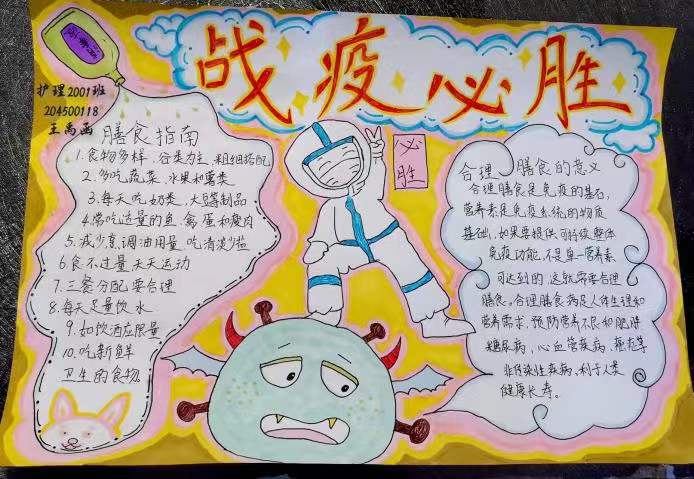 战疫必胜
护理2001班
204500118
王禹函
膳食指南
1.食物多样、谷类为主、粗细搭配
2.多吃蔬菜、水果和薯类
3.每天吃奶类、大豆制品
4.常吃适量的鱼、禽、蛋和瘦肉
5.减少烹调油用量、吃清淡少盐
6.食不过量天天运动
7.三餐分配要合理
8.每天足量饮水
9.如饮酒应限量
10.吃新鲜
卫生的食物
必胜
合理膳食的意义
合理膳食是免疫的基石,
营养素是免疫系统的物质
基础,如果要提供可持续整体
免疫功能,不是单一营养素
可达到的,这就需要合理
膳食。合理膳食满足人体生理和
营养需求,预防营养不良和肥胖
糖尿病、心血管疾病、癌症等
非传染性疾病,利于人类
健康长寿。